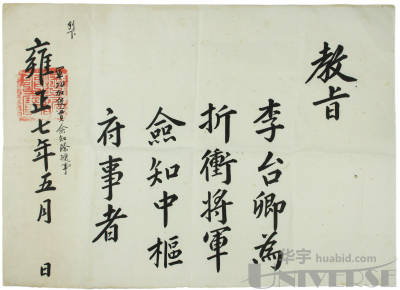 教旨
李台卿為
折衝將軍
僉知中樞
府事者
雍正七年五月 日
华宇 huabid.com
UNIVERSE